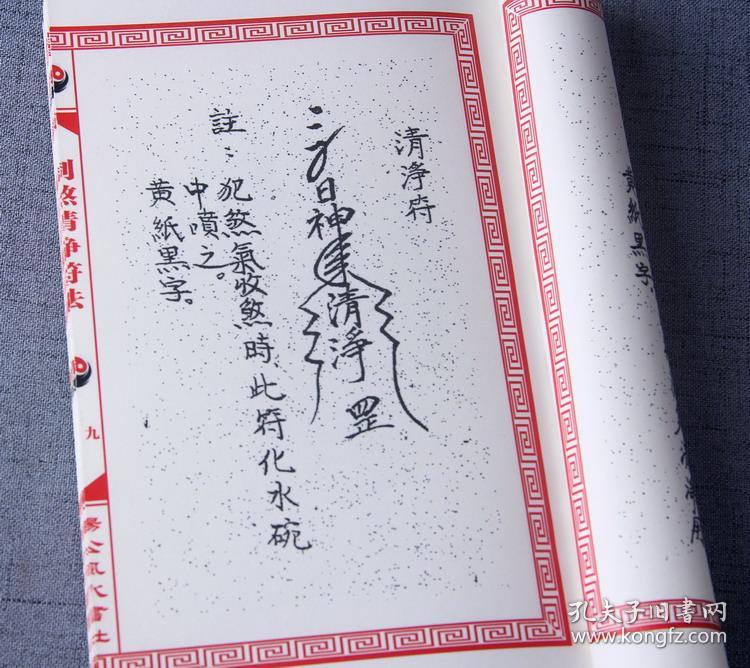 清淨符
日神清淨罡
註：犯煞氣收煞時此符化水碗
中噴之。
黃紙黑字。
制煞清淨符法
九
黃紙黑字
孔夫子旧書网
www.kongfz.com